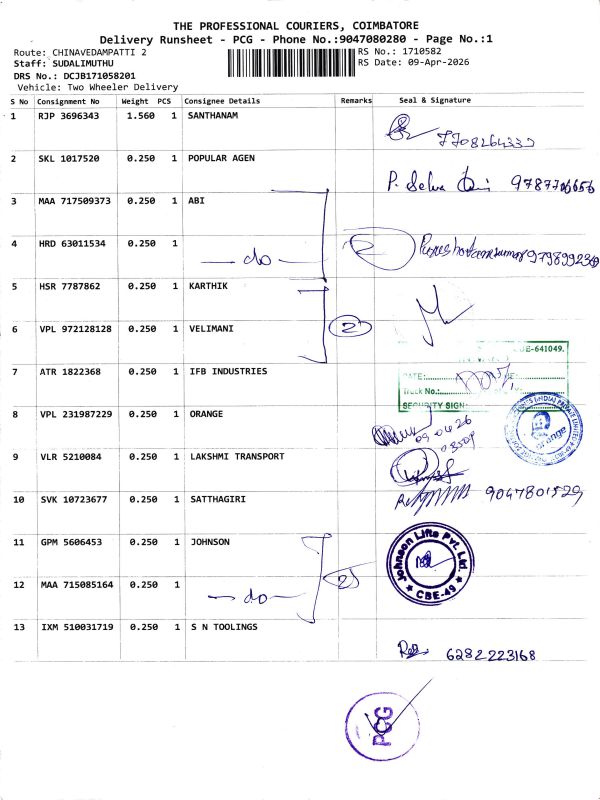 THE PROFESSIONAL COURIERS, COIMBATORE
Delivery Runsheet - PCG - Phone No.:9047080280 - Page No.:1
Route: CHINAVEDAMPATTI 2
RS No.: 1710582
Staff: SUDALIMUTHU
RS Date: 09-Apr-2026
DRS No.: DCJB171058201
Vehicle: Two Wheeler Delivery
S No Consignment No Weight PCS Consignee Details Remarks Seal & Signature
1 RJP 3696343 1.560 1 SANTHANAM
2 SKL 1017520 0.250 1 POPULAR AGEN
P. Selva
3 MAA 717509373 0.250 1 ABI
4 HRD 63011534 0.250 1 - do -
5 HSR 7787862 0.250 1 KARTHIK
6 VPL 972128128 0.250 1 VELIMANI 2
-641049.
7 ATR 1822368 0.250 1 IFB INDUSTRIES
DATE:
Truck No.:
SECURITY SIGN
8 VPL 231987229 0.250 1 ORANGE
09.04.26
9 VLR 5210084 0.250 1 LAKSHMI TRANSPORT
10 SVK 10723677 0.250 1 SATTHAGIRI
9047801529
11 GPM 5606453 0.250 1 JOHNSON
Johnson Lifts Pvt. Ltd.
★ CBE-49 ★
12 MAA 715085164 0.250 1 - do - 2
13 IXM 510031719 0.250 1 S N TOOLINGS
6282223168
PCG